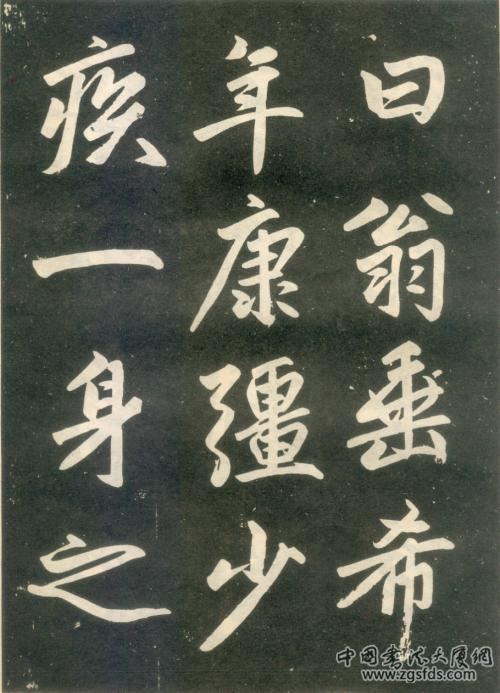 曰翁垂希
年康彊少
疾一身之
中國書法大厦網
www.zgsfds.com